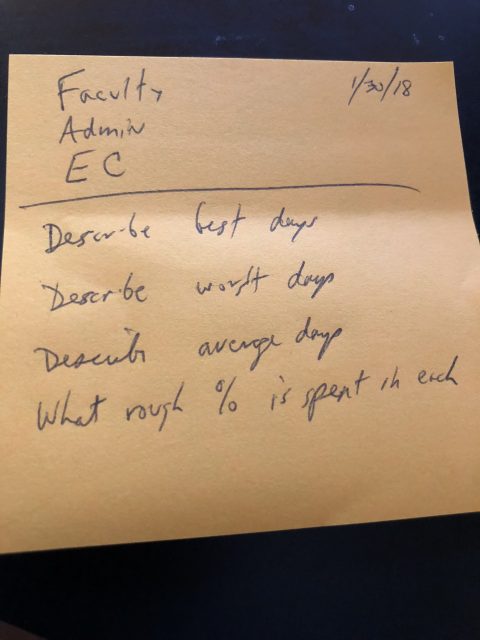 Faculty 1/30/18
Admin
EC
Describe best days
Describe worst days
Describe average days
What rough % is spent in each